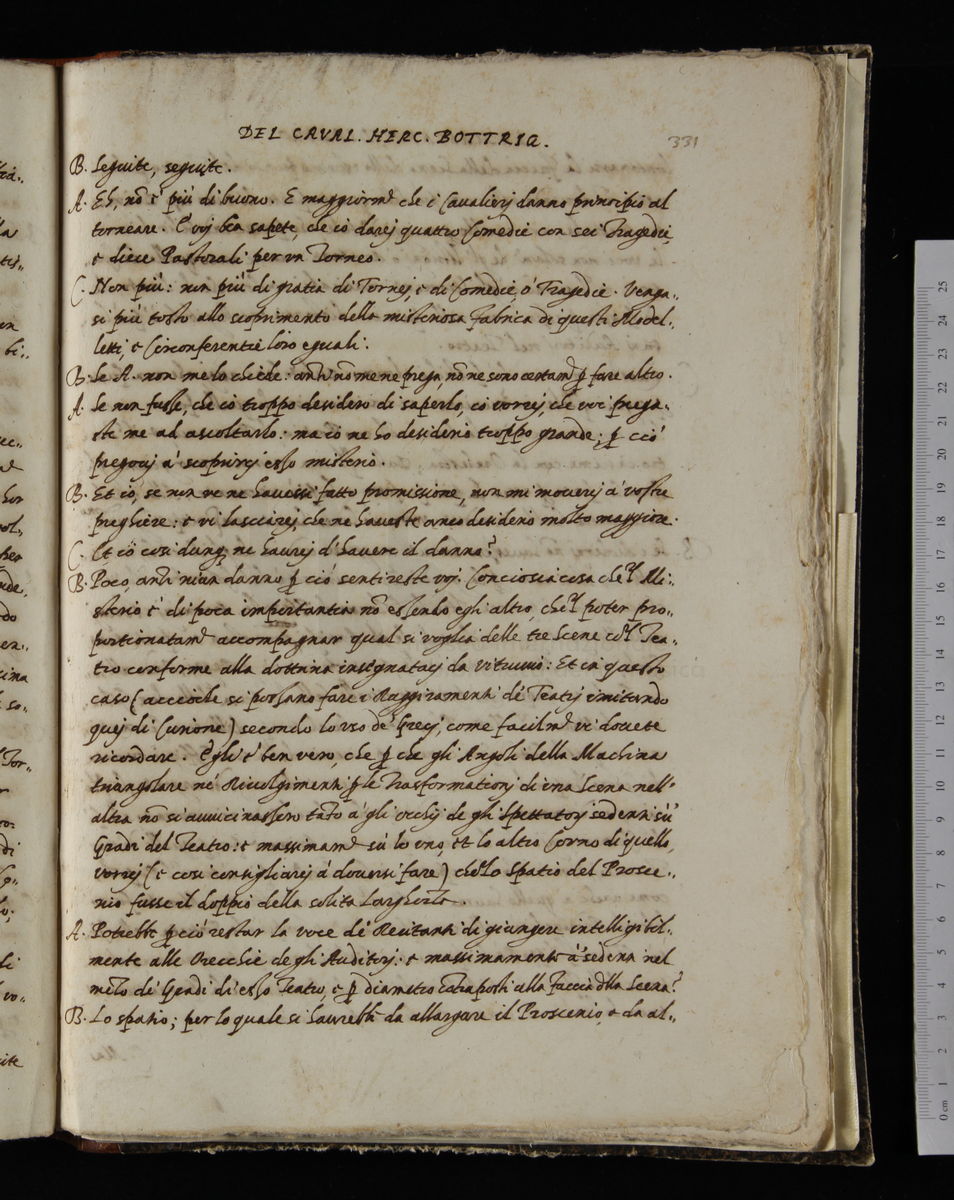 DEL CAVAL. HERC. BOTTRIG.
331
B. Seguite, seguite.
A. Eh, nõ è più di buono. E maggiorm.e che i Cavalierj danno principio al
torneare. E voj ben sapete, che io darej quattro Comedie con sei Tragedie,
e diece Pastorali per un Torneo.
C. Non più: non più di gratia di Tornej, e di Comedie, ò Tragedie. Venga,,
si più tosto allo scoprimento della misteriosa fabrica di questi Model,,
letti, e Circonferentie loro eguali.
B. Se A. non me lo chiede: anzi nõ me ne prega, nõ ne sono certam.e p fare altro.
A. Se non fusse, che io troppo desidero di saperlo, io vorrej, che voi prega,,
ste me ad ascoltarlo: ma io ne ho desiderio troppo grande; p ciò
pregovj à scoprirej esso misterio.
B. Et io, se non ve ne havessi fatto promissione, non mi moverej à vostre
preghiere: e vi lasciarej, che ne haveste anco desiderio molto maggiore.
C. Et io così dunq, ne haurej d'havere il danno?
B. Poco, anzi niun danno p ciò sentireste voj. Conciosia cosa che'l Mi,,
sterio è di poca importantia nõ essendo egli altro, che'l poter pro,,
portionatam.e accompagnar qual si voglia delle tre Scene co'l Tea,,
tro conforme alla dottrina insegnatacj da Vitruvio: Et in questo
caso (accioche si possano fare i Raggiramenti de' Teatrj imitando
quej di Curione) secondo lo uso de' Grecj, come facilm.e vi dovete
ricordare. Egli è ben vero, che p che gli Angoli della Machina
triangolare ne' Rivolgimenti p le Trasformationj di una Scena nell'
altra nõ si avvicinassero tãto à gli occhj de gli Spettatorj sedenti sù
Gradi del Teatro: e massimam.e sù lo uno, et lo altro Corno di quello,
vorrej (e così consigliarej à doversi fare) che lo Spatio del Prosce,,
nio fusse il doppio della solita Larghezza.
A. Potrebbe p ciò restar la voce de' Recitanti di giungere intelligibil,,
mente alle Orecchie degli Auditorj: e massimamente a' sedenti nel
mezo de' Gradi di esso Teatro, e p diametro cõtraposti alla faccia della Scena?
B. Lo spatio; per lo quale si haurebbe da allargare il Proscenio, e da al,,